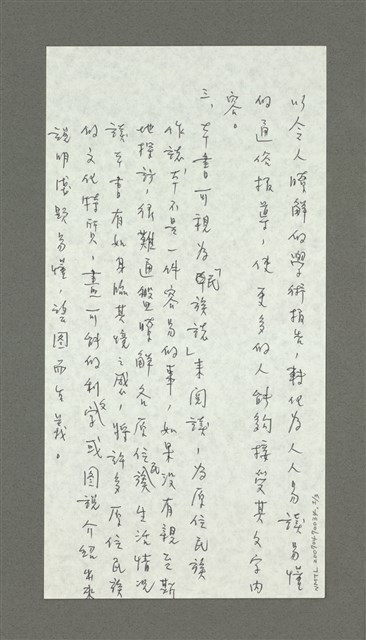 以令人瞭解的學術報告,轉化為人人易讀易懂
的通俗報導,使更多的人能夠接受其文字內
容。
三、本書可視為「民族誌」來閱讀,為原住民族
作誌,本不是一件容易的事,如果沒有親至斯
地探訪,很難通盤瞭解各原住民族生活情況
讀本書有如身臨其境之感,將許多原住民族
的文化特質,盡可能的利文字或圖說介紹出來
說明淺顯易懂,望圖而生義。
NMTL 20090490034, 2/3